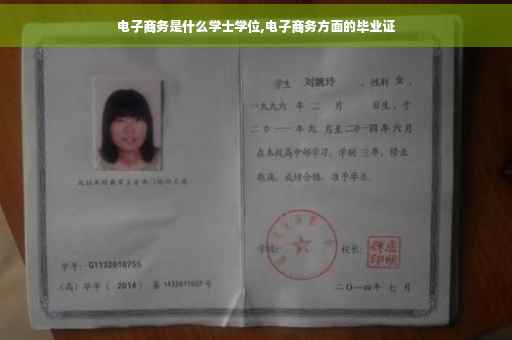 电子商务是什么学士学位,电子商务方面的毕业证
学生 刘婉玲 ,性别 女 ,
一九九六 年 二 月 日生,于
二〇一一 年 九 月至 二〇一四 年 六 月
在本校高中部学习,学制 三年,修业
期满,成绩合格,准予毕业。
学号: G1132010755
(高)毕字( 2014 )第 1432011027 号
学校:
校长:
二〇一四年 七 月